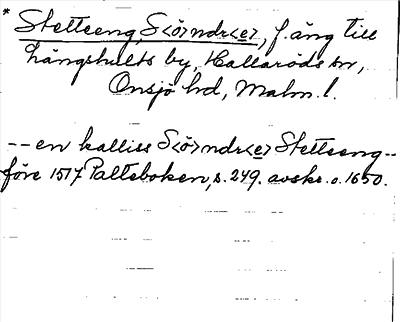 * Stetteeng, S<ö>ndr<e>, f. äng till
Långshults by, Hallaröds sn,
Onsjö hd, Malm. l.
-- en kalliss S<ö>ndr<e> Stetteeng --
före 1517 Palteboken, s. 249. avskr. o. 1650.